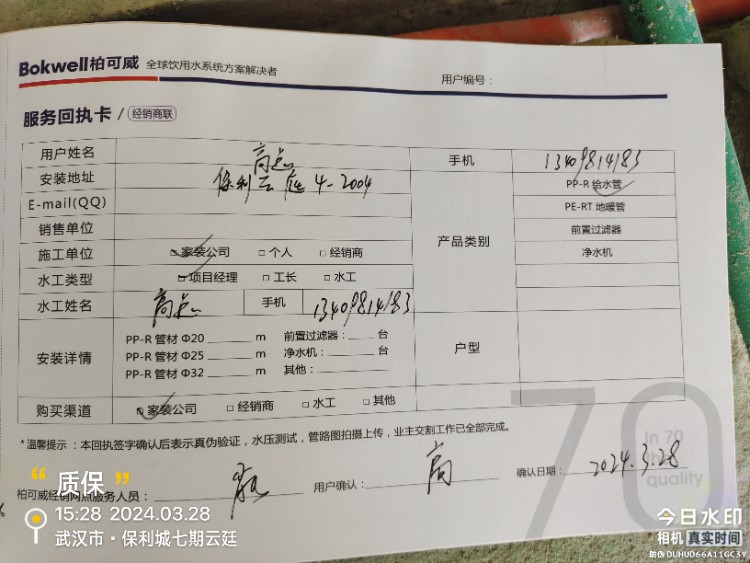 Bokwell柏可威 全球饮用水系统方案解决者
用户编号：
服务回执卡 / 经销商联
用户姓名 高 手机 13409814183
安装地址 保利云庭 4-2004 产品类别 PP-R 给水管
E-mail(QQ) PE-RT 地暖管
销售单位 前置过滤器
施工单位 家装公司 个人 经销商 净水机
水工类型 项目经理 工长 水工
水工姓名 高 手机 13409814183
安装详情 户型
PP-R 管材 Φ20 ____ m 前置过滤器：____ 台
PP-R 管材 Φ25 ____ m 净水机：____ 台
PP-R 管材 Φ32 ____ m 其他：____
购买渠道 家装公司 经销商 水工 其他
*温馨提示：本回执签字确认后表示真伪验证，水压测试，管路图拍摄上传，业主交割工作已全部完成。
70
in 70
quality
柏可威经销网点服务人员： 用户确认： 高 确认日期： 2024.3.28
质保
15:28 2024.03.28
武汉市·保利城七期云廷
今日水印
相机 真实时间
防伪 DUHUD66A11GC3Y